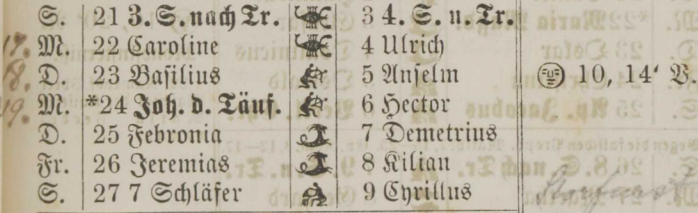 S. 21 3. S. nach Tr. 3 4. S. n. Tr.
17. M. 22 Caroline 4 Ulrich
18. D. 23 Basilius 5 Anselm 10, 14' V.
19. M. *24 Joh. d. Täuf. 6 Hector
D. 25 Febronia 7 Demetrius
Fr. 26 Jeremias 8 Kilian
S. 27 7 Schläfer 9 Cyrillus